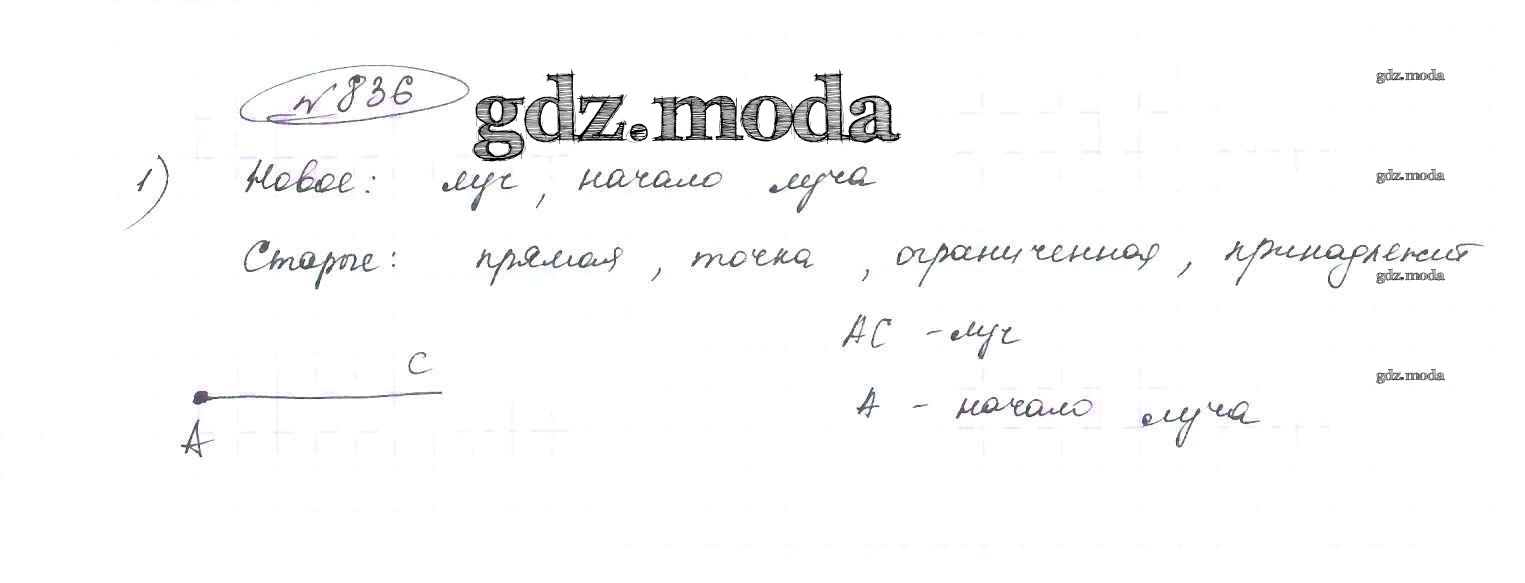 № 836
gdz.moda
gdz.moda
1) Новое: луч, начало луча
gdz.moda
Старые: прямая, точка, ограниченная, принадлежит
gdz.moda
AC - луч
C
gdz.moda
A - начало луча
A